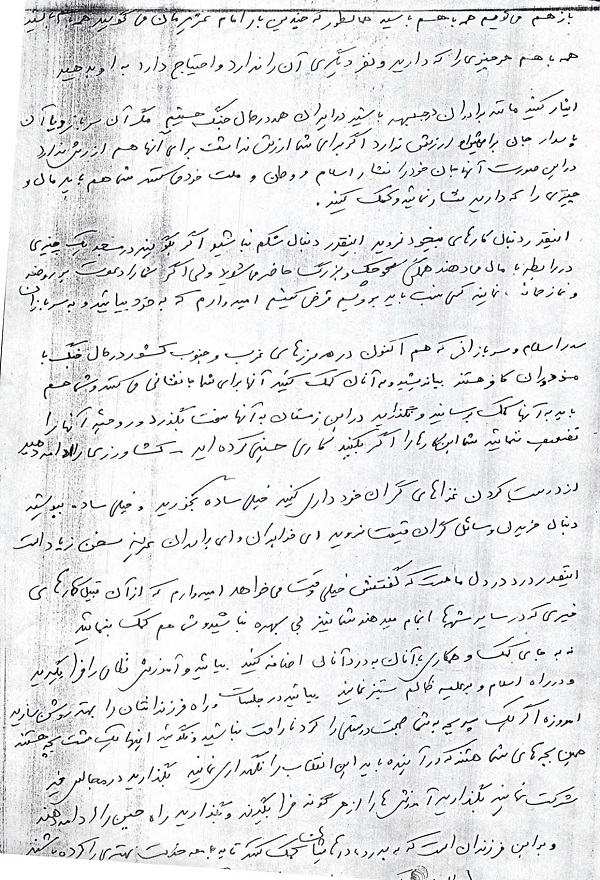 باز هم می‌گویم همه با هم باشید همانطور که چندین بار امام عزیزمان می گویند همه با هم باشید
همه با هم هر چیزی را که دارید و نفر دیگری آن را ندارد و احتیاج دارد به او بدهید
ایثار کنید مانند برادران در جبهه باشید در ایران همه در حال جنگ هستیم مگر آن سرباز و یا آن
پاسدار جان برایش ارزش ندارد اگر برای شما ارزش نداشت برای آنها هم ارزش ندارد
در این صورت آنها جان خود را نثار اسلام و وطن و ملت خود می کنند شما هم باید مال و
چیزی را که دارید نثار نمائید و کمک کنید .
اینقدر دنبال کارهای بیخود نروید اینقدر دنبال شکم نباشید اگر بگویند در مسجد یک چیزی
در رابطه با مال می دهند همگی کوچک و بزرگ حاضر می شوید ولی اگر شما را دعوت به روضه
و نماز خانه نمایند کسی نیست باید برویم قرض کنیم امیدوارم که به خود بیائید و به سربازان
صدر اسلام و سربازانی که هم اکنون در مرزهای غرب و جنوب کشور در حال جنگ با
مزدوران کافر هستند بیاندیشید و به آنان کمک کنید آنها برای شما جانفشانی می کنند و شما هم
باید به آنها کمک برسانید و نگذارید در این زمستان به آنها سخت بگذرد و روحیه آنها را
تضعیف ننمائید شما این کارها را اگر بکنید کاری حسینی کرده اید - کشاورزی را ادامه دهید
از درست کردن غذاهای گران خودداری کنید خیلی ساده بخورید و خیلی ساده بپوشید
دنبال خریدن وسائل گران قیمت نروید ای خواهران و ای برادران عزیز سخن زیاد است
اینقدر درد در دل ما هست که گفتنش خیلی وقت می خواهد امیدوارم که از آن قبیل کارهای
خیری که در سایر شهرها انجام میدهند شما نیز بی بهره نباشید و شما هم کمک بنمائید
نه به جای کمک و همکاری با آنان به درد آنان اضافه کنید بیائید و آموزش نظامی را فرا بگیرید
و در راه اسلام و بر علیه ظالم ستیز نمایید بیائید در جلسات و راه فرزندانتان را بهتر روشن سازید
امروزه اگر یک پسر بچه به شما صحبت درستی را کرد ناراحت نباشید و نگوئید اینها یک مشت بچه هستند
همین بچه های شما هستند که در آینده باید این انقلاب را نگهداری نمایند بگذارید در مجالس خیر
شرکت نمایند بگذارید آموزش ها را از هر گونه فرا بگیرند و بگذارید راه حسین را ادامه دهند
و بر این فرزندان است که به پدر و مادرهایشان کمک کنند تا به جامعه خدمت بهتری را کرده باشند